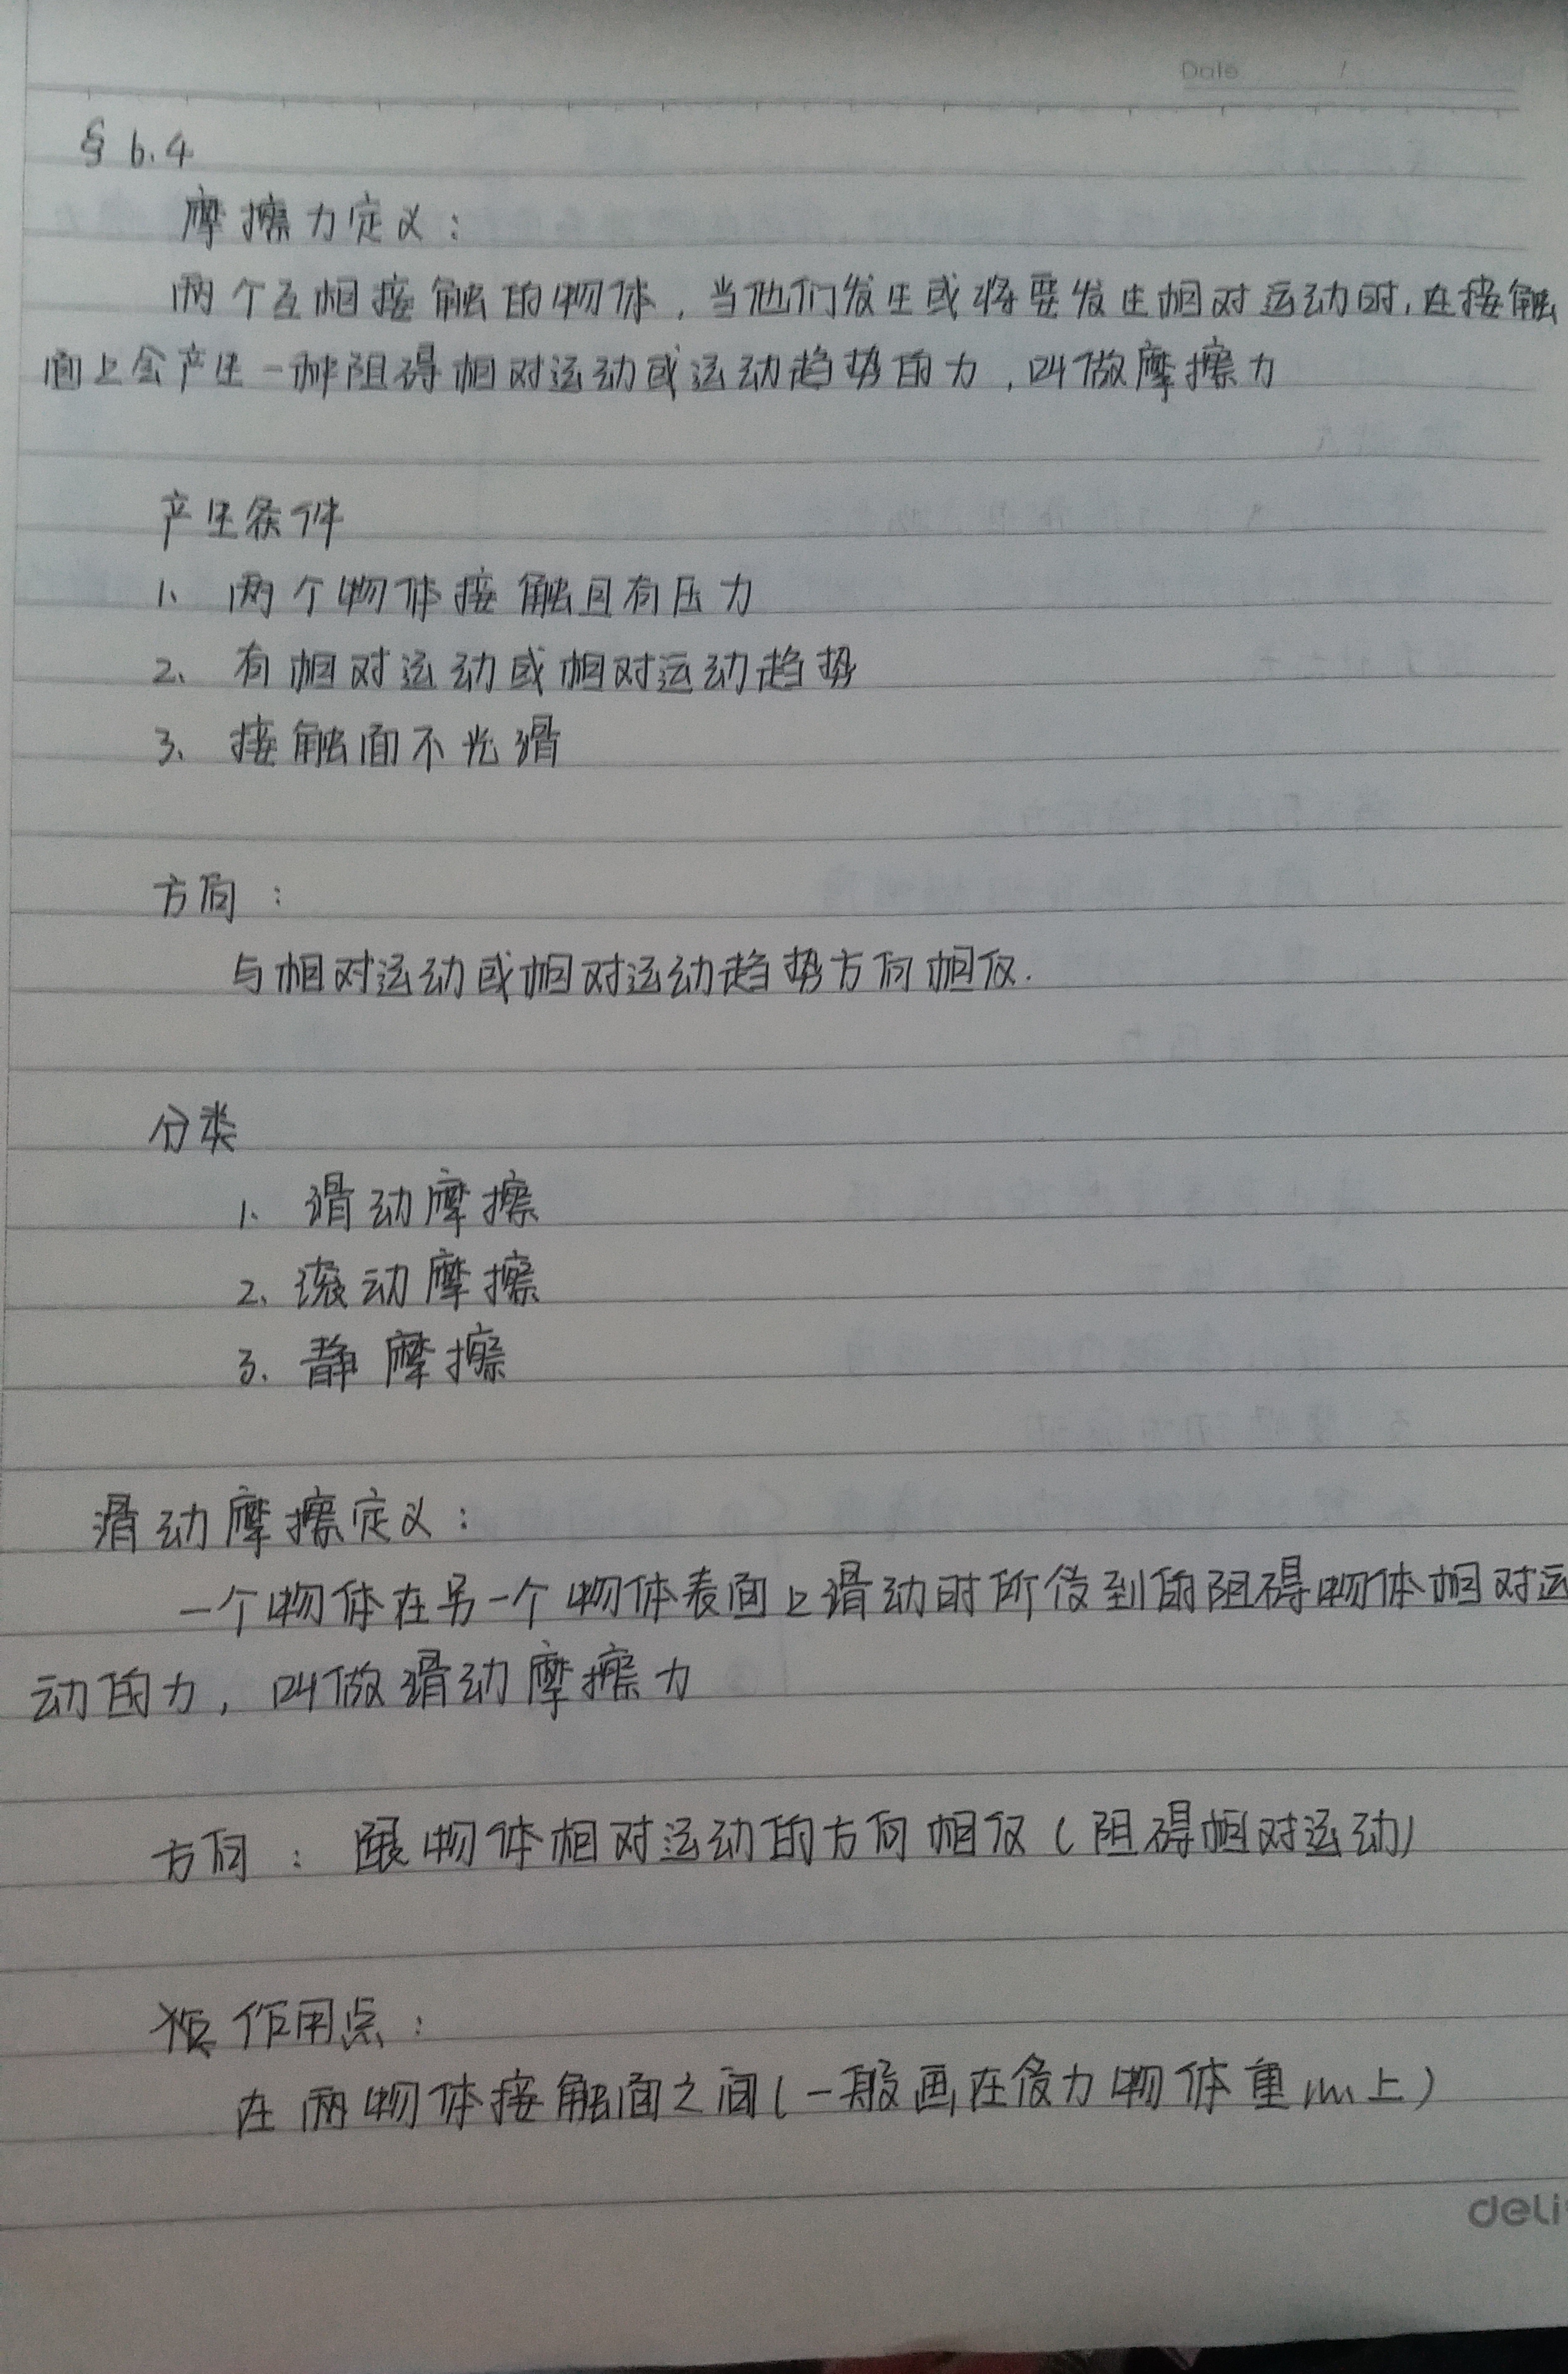 Date /
§ 6.4
摩擦力定义：
两个互相接触的物体，当他们发生或将要发生相对运动时，在接触
面上会产生一种阻碍相对运动或运动趋势的力，叫做摩擦力
产生条件
1、两个物体接触且有压力
2、有相对运动或相对运动趋势
3、接触面不光滑
方向：
与相对运动或相对运动趋势方向相反.
分类
1、滑动摩擦
2、滚动摩擦
3、静摩擦
滑动摩擦定义：
一个物体在另一个物体表面上滑动时所受到的阻碍物体相对运
动的力，叫做滑动摩擦力
方向：跟物体相对运动的方向相反（阻碍相对运动）
作用点：
在两物体接触面之间（一般画在受力物体重心上）
deli